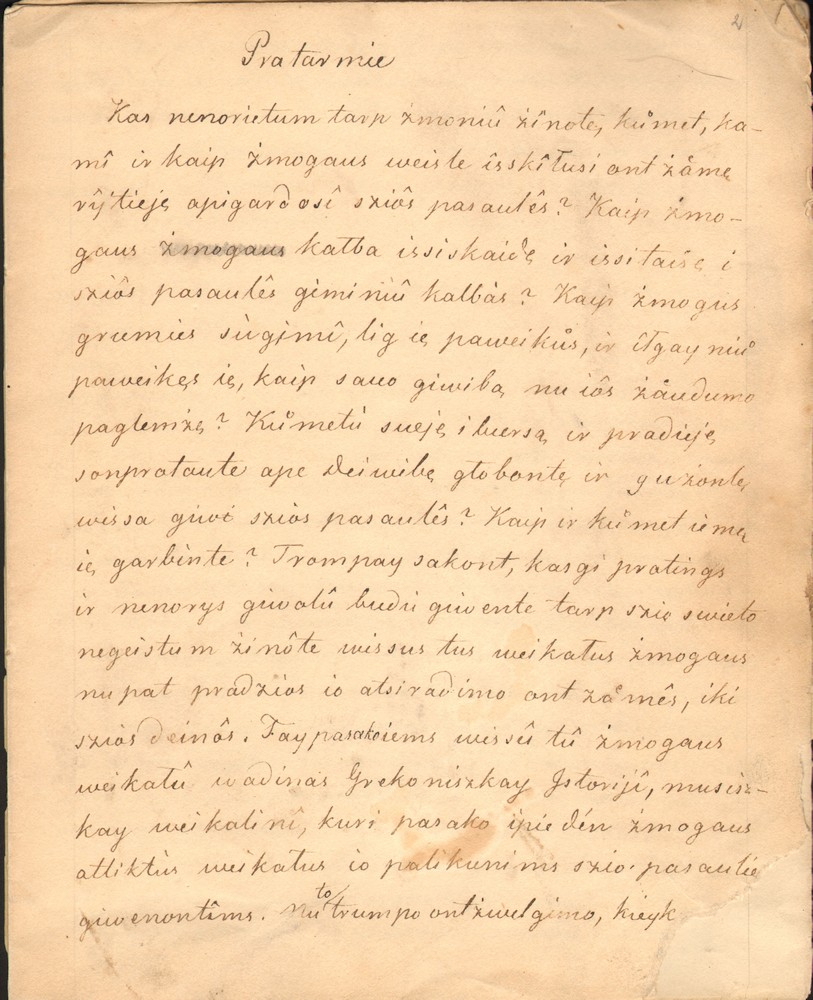 2
Pratarmie
Kas nenorietum tarp żmoniû żînotę, ků̊met, ka-
mî ir kaip żmogaus weisle îsskîtusi ont żåmę
rŷtieję apigardosî sziôs pasaulês? Kaip żmo-
gaus żmogaus kałba issiskaidę ir issitaisę i
sziôs pasaulês giminiû kałbàs? Kaip żmogus
grumies sù gimî, lig ię paweikůs, ir îłgay niů
paweikęs ię, kaip sawo giwibą nu iôs żåudumo
paglemżę? Ků̊metù suėję i buersą ir pradieję
sonprotaute ape Deiwibę głobontę ir gużontę
wissa giwi sziôs pasaulês? Kaip ir kůmet iemę
ię garbinte? Trompay sakont, kasgi protings
ir nenorys giwołû budù giwente tarp szio swieto
negeistum żinôte wissus tus weikałus żmogaus
nu pat pradzios io atsiradimo ont zåmês, iki
sziôs deinôs. Tay pasakoiems wissû tû żmogaus
weikałû wadinas Grekoniszkay Istorijî, musisz-
kay weikalinî, kuri pasako ipiedén żmogaus
atliktùs weikałus io palikunims szio pasaulie
giwenontîms. Nu to trumpo ontżwelgimo, kieyk